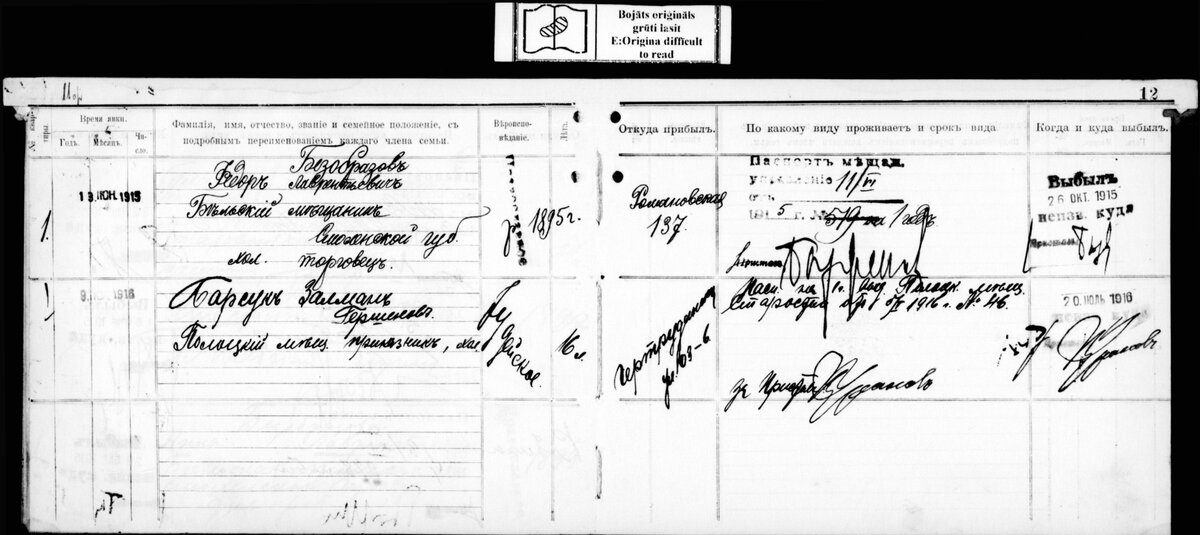 Bojāts oriģināls
grūti lasīt
E:Origina difficult
to read
12
Время явки.
Годъ.
Мѣсяцъ.
Чи-
сло.
Фамилія, имя, отчество, званіе и семейное положеніе, съ
подробнымъ переименованіемъ каждаго члена семьи.
Вѣроиспо-
вѣданіе.
Лѣта.
Откуда прибылъ.
По какому виду проживаетъ и срокъ вида
Когда и куда выбылъ.
1.
19 ІЮН. 1915
Безобразовъ
Ѳедоръ Лаврентьевичъ
Бѣльскій мѣщанинъ
Смоленской губ.
хол. торговецъ.
1895 г.
Романовская
137.
Паспортъ мѣщан.
управленіе 11/VI
191 5 г. № 519 на 1 годъ
Выбылъ
26 ОКТ. 1915
неизв. куда
9 1916
Барсукъ Залманъ
Гершеновъ.
Полоцкій мѣщ. приказчикъ, хол
Іудейское.
16 л.
Гертрудинская
ул. 103-6.
Полоцк. мѣщ.
Старосты отъ 1916 г. № 46.
20 ІЮЛЬ 1916